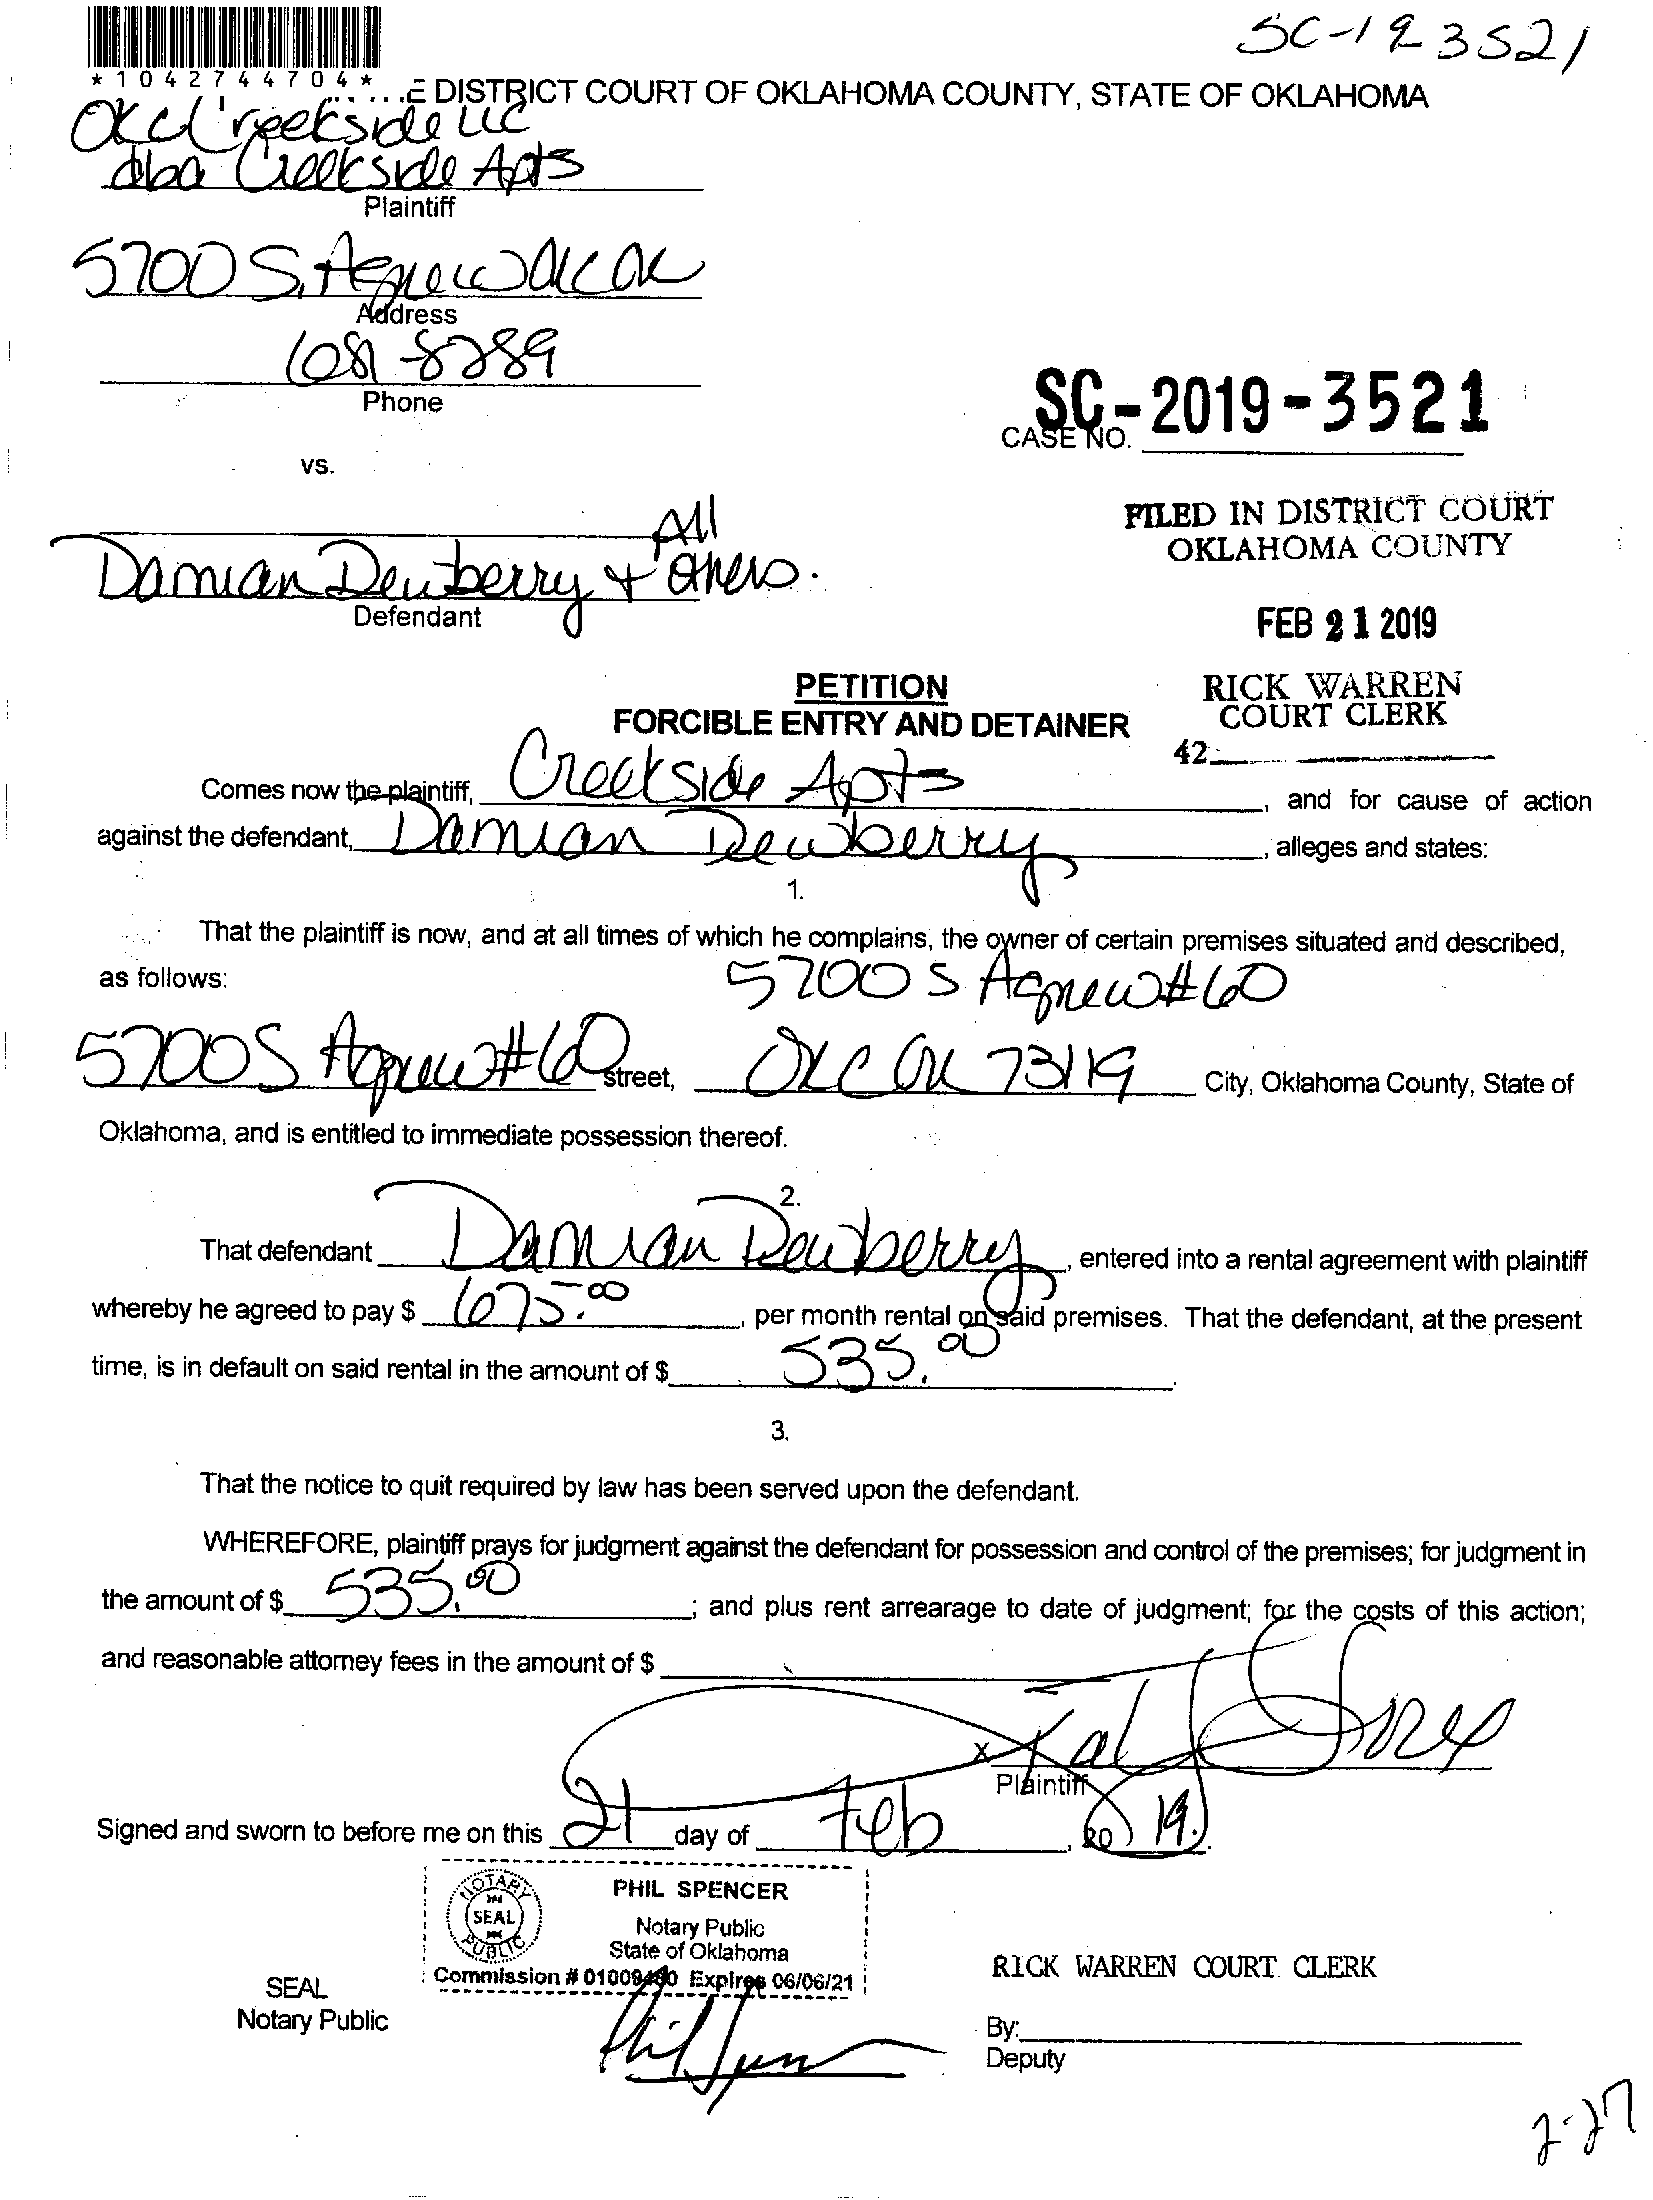 SC-19 3521
*1042744704*
E DISTRICT COURT OF OKLAHOMA COUNTY, STATE OF OKLAHOMA
OKC Creekside LLC
dba Creekside Apts
Plaintiff
5700 S. Agnew OKC OK
Address
681-8289
Phone
SC-2019-3521
CASE NO.
vs.
All
Damian Dewberry + others.
Defendant
FILED IN DISTRICT COURT
OKLAHOMA COUNTY
FEB 21 2019
RICK WARREN
COURT CLERK
42
PETITION
FORCIBLE ENTRY AND DETAINER
Comes now the plaintiff, Creekside Apts, and for cause of action
against the defendant, Damian Dewberry, alleges and states:
1.
That the plaintiff is now, and at all times of which he complains, the owner of certain premises situated and described,
as follows: 5700 S Agnew #60
5700 S Agnew #60 Street, OKC OK 73119 City, Oklahoma County, State of
Oklahoma, and is entitled to immediate possession thereof.
2.
That defendant Damian Dewberry, entered into a rental agreement with plaintiff
whereby he agreed to pay $ 675.00, per month rental on said premises. That the defendant, at the present
time, is in default on said rental in the amount of $ 535.00.
3.
That the notice to quit required by law has been served upon the defendant.
WHEREFORE, plaintiff prays for judgment against the defendant for possession and control of the premises; for judgment in
the amount of $ 535.00; and plus rent arrearage to date of judgment; for the costs of this action;
and reasonable attorney fees in the amount of $
x
Plaintiff
Signed and sworn to before me on this 21 day of Feb, 20 19.
NOTARY PUBLIC SEAL
PHIL SPENCER
Notary Public
State of Oklahoma
Commission # Expires 06/06/21
SEAL
Notary Public
RICK WARREN COURT CLERK
By:
Deputy
2-27